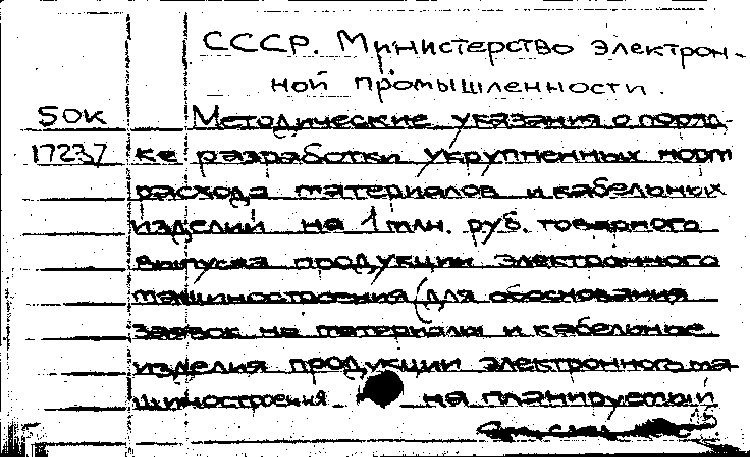 СССР. Министерство электрон-
ной промышленности.
50к Методические указания о поряд-
17237 ке разработки укрупненных норм
расхода материалов и кабельных
изделий на 1 млн. руб. товарного
выпуска продукции электронного
машиностроения (для обоснования
заявок на материалы и кабельные
изделия продукции электронного ма-
шиностроения на планируемый